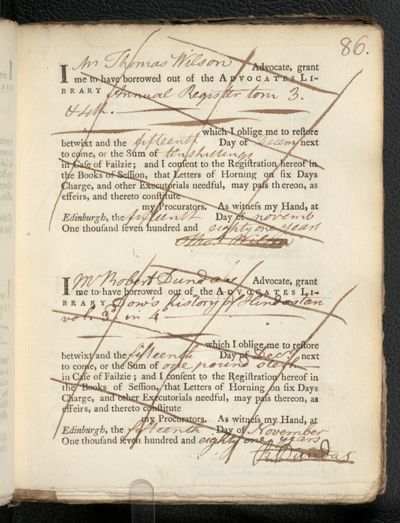 86.
I Mr Thomas Wilson Advocate, grant
me to have borrowed out of the ADVOCATES LI-
BRARY Annual Register tom 3.
& 4th.
which I oblige me to reſtore
betwixt and the fifteenth Day of Decem next
to come, or the Sum of ten shillings
in Caſe of Failzie; and I conſent to the Regiſtration hereof in
the Books of Seſſion, that Letters of Horning on ſix Days
Charge, and other Executorials needful, may paſs thereon, as
effeirs, and thereto conſtitute
my Procurators. As witneſs my Hand, at
Edinburgh, the fifteenth Day of novemb
One thouſand ſeven hundred and eighty one years
Thos Wilson
I Mr Robert Dundas Advocate, grant
me to have borrowed out of the ADVOCATES LI-
BRARY Dow's history of Hindostan
vol 3d in 4o
which I oblige me to reſtore
betwixt and the fifteenth Day of Decr next
to come, or the Sum of one pound sterl
in Caſe of Failzie; and I conſent to the Regiſtration hereof in
the Books of Seſſion, that Letters of Horning on ſix Days
Charge, and other Executorials needful, may paſs thereon, as
effeirs, and thereto conſtitute
my Procurators. As witneſs my Hand, at
Edinburgh, the fifteenth Day of November
One thouſand ſeven hundred and eighty one years
R. Dundas